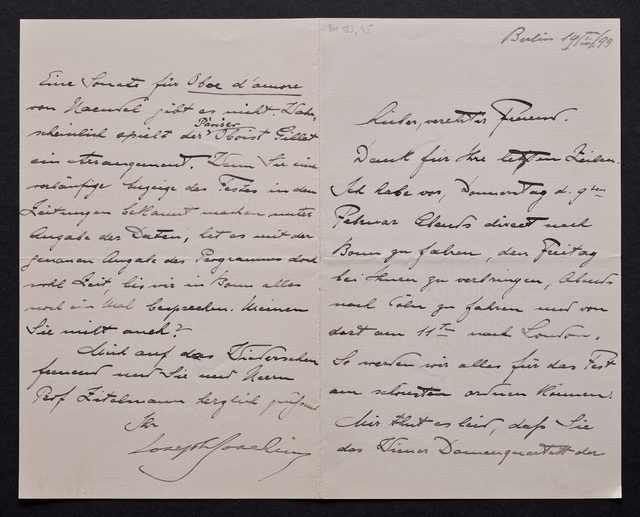 BH 183, 45
Berlin 19/I/99
Lieber, verehrter Freund.
Dank für Ihre letzten Zeilen.
Ich habe vor, Donnerstag d. 9ten
Februar Abends direct nach
Bonn zu fahren, den Freitag
bei Ihnen zu verbringen, Abends
nach Cöln zu fahren und von
dort am 11ten nach London.
So werden wir alles für das Fest
am schönsten ordnen können.
Mir thut es leid, daß Sie
das Wiener Damenquartett der
Eine Sonate für Oboe d'amore
von Haendel gibt es nicht. Wahr-
scheinlich spielt der Pariser Oboist Gillet
ein Arrangement. Wenn Sie eine
vorläufige Anzeige des Festes in den
Zeitungen bekannt machen unter
Angabe der Daten, hat es mit der
genauen Angabe des Programms doch
wohl Zeit bis wir in Bonn alles
noch ein Mal besprechen. Meinen
Sie nicht auch?
Mich auf das Wiedersehen
freuend und Sie und Herrn
Prof Zitelmann herzlich grüßend
Ihr
Joseph Joachim